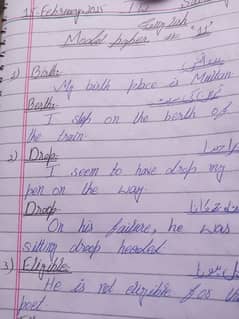 15-February 2025
English
Model paper "11"
1) Birth:
My birth place is Multan
Berth:
I slep on the berth of
the train.
2) Drop:
I seem to have drop my
pen on the way.
Droop:
On his failure, he was
sitting droop headed.
3) Eligible:
He is not eligible for the